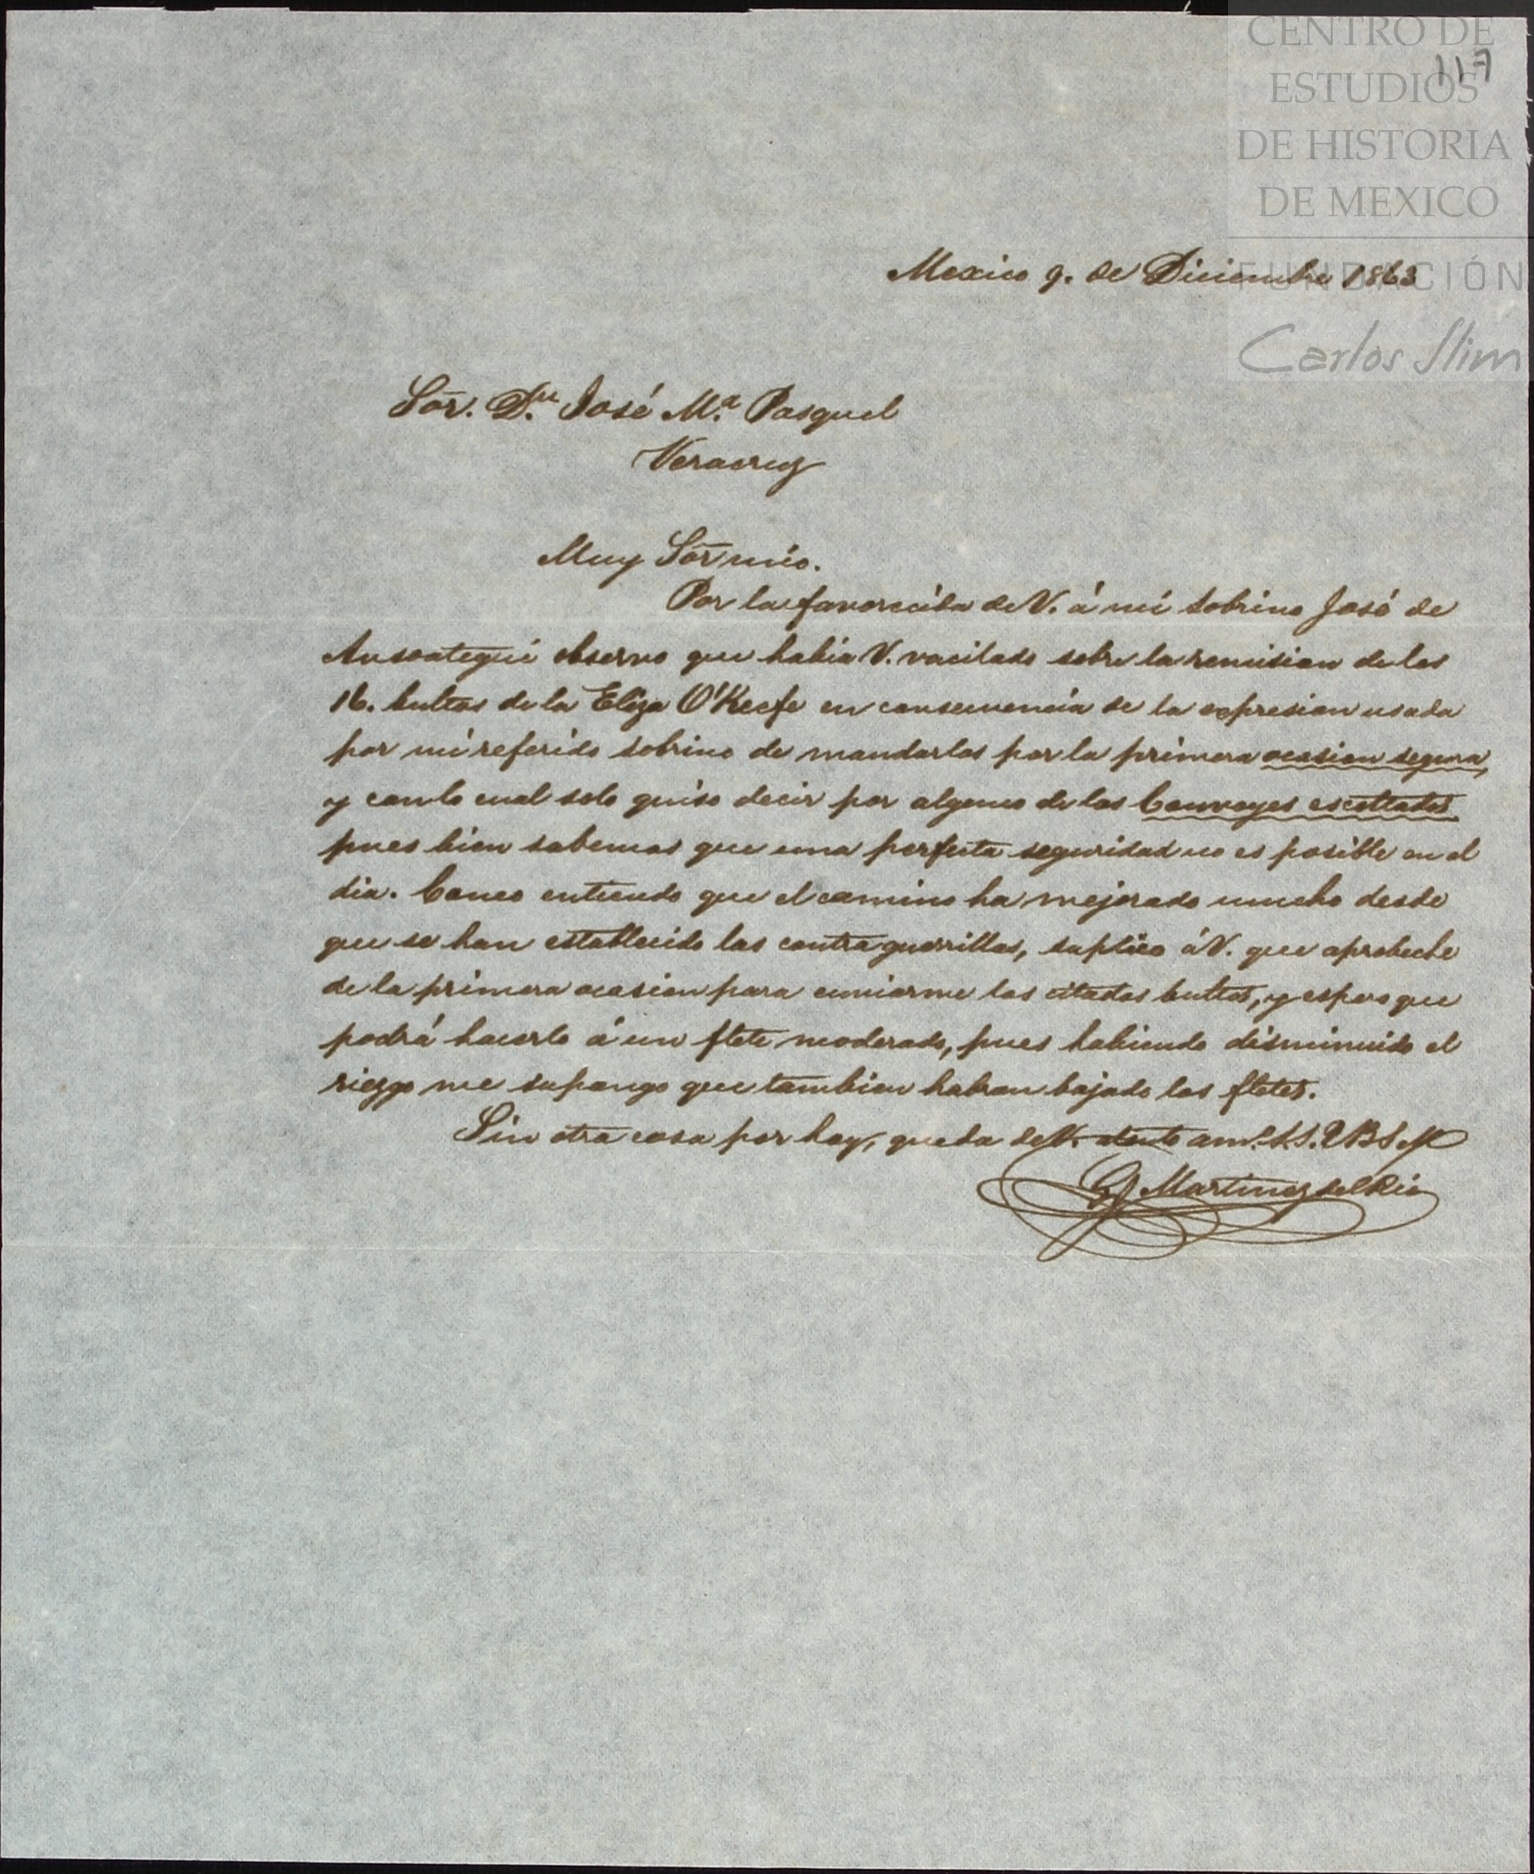 CENTRO DE
ESTUDIOS
DE HISTORIA
DE MEXICO
FUNDACIÓN
Carlos Slim
117
Mexico 9. de Diciembre 1863
Sõr. Dn. José Ma. Pasquel
Veracruz
Muy Sõr mío.
Por la favorecida de V. á mi sobrino José de
Ansoategui observo que había V. vacilado sobre la remision de los
16. bultos de la Eliza O'Keefe en consecuencia de la expresion usada
por mi referido sobrino de mandarlos por la primera ocasion segura,
y con lo cual solo quiso decir por alguno de los Convoyes escoltados
pues bien sabemos que una perfecta seguridad no es posible en el
dia. Como entiendo que el camino ha mejorado mucho desde
que se han establecido las contraguerrillas, suplico á V. que aprobeche
de la primera ocasion para enviarme los citados bultos, y espero que
podrá hacerlo á un flete moderado, pues habiendo disminuido el
riezgo me supongo que tambien habran bajado los fletes.
Sin otra cosa por hoy, queda de V. atento am.º S.S. Q B S M
G Martinez del Rio